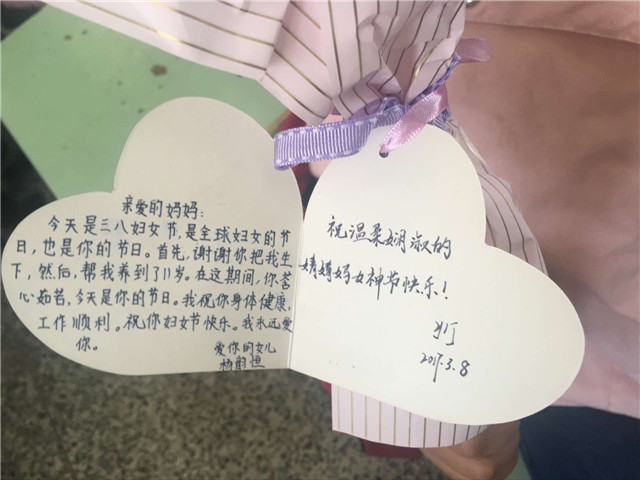 亲爱的妈妈:
今天是三八妇女节,是全球妇女的节
日,也是你的节日。首先,谢谢你把我生
下,然后,帮我养到了11岁。在这期间,你苦
心茹苦,今天是你的节日。我祝你身体健康,
工作顺利。祝你妇女节快乐。我永远爱
你。
爱你的女儿
杨韵恒
祝温柔娴淑的
婧婧妈女神节快乐!
2017.3.8